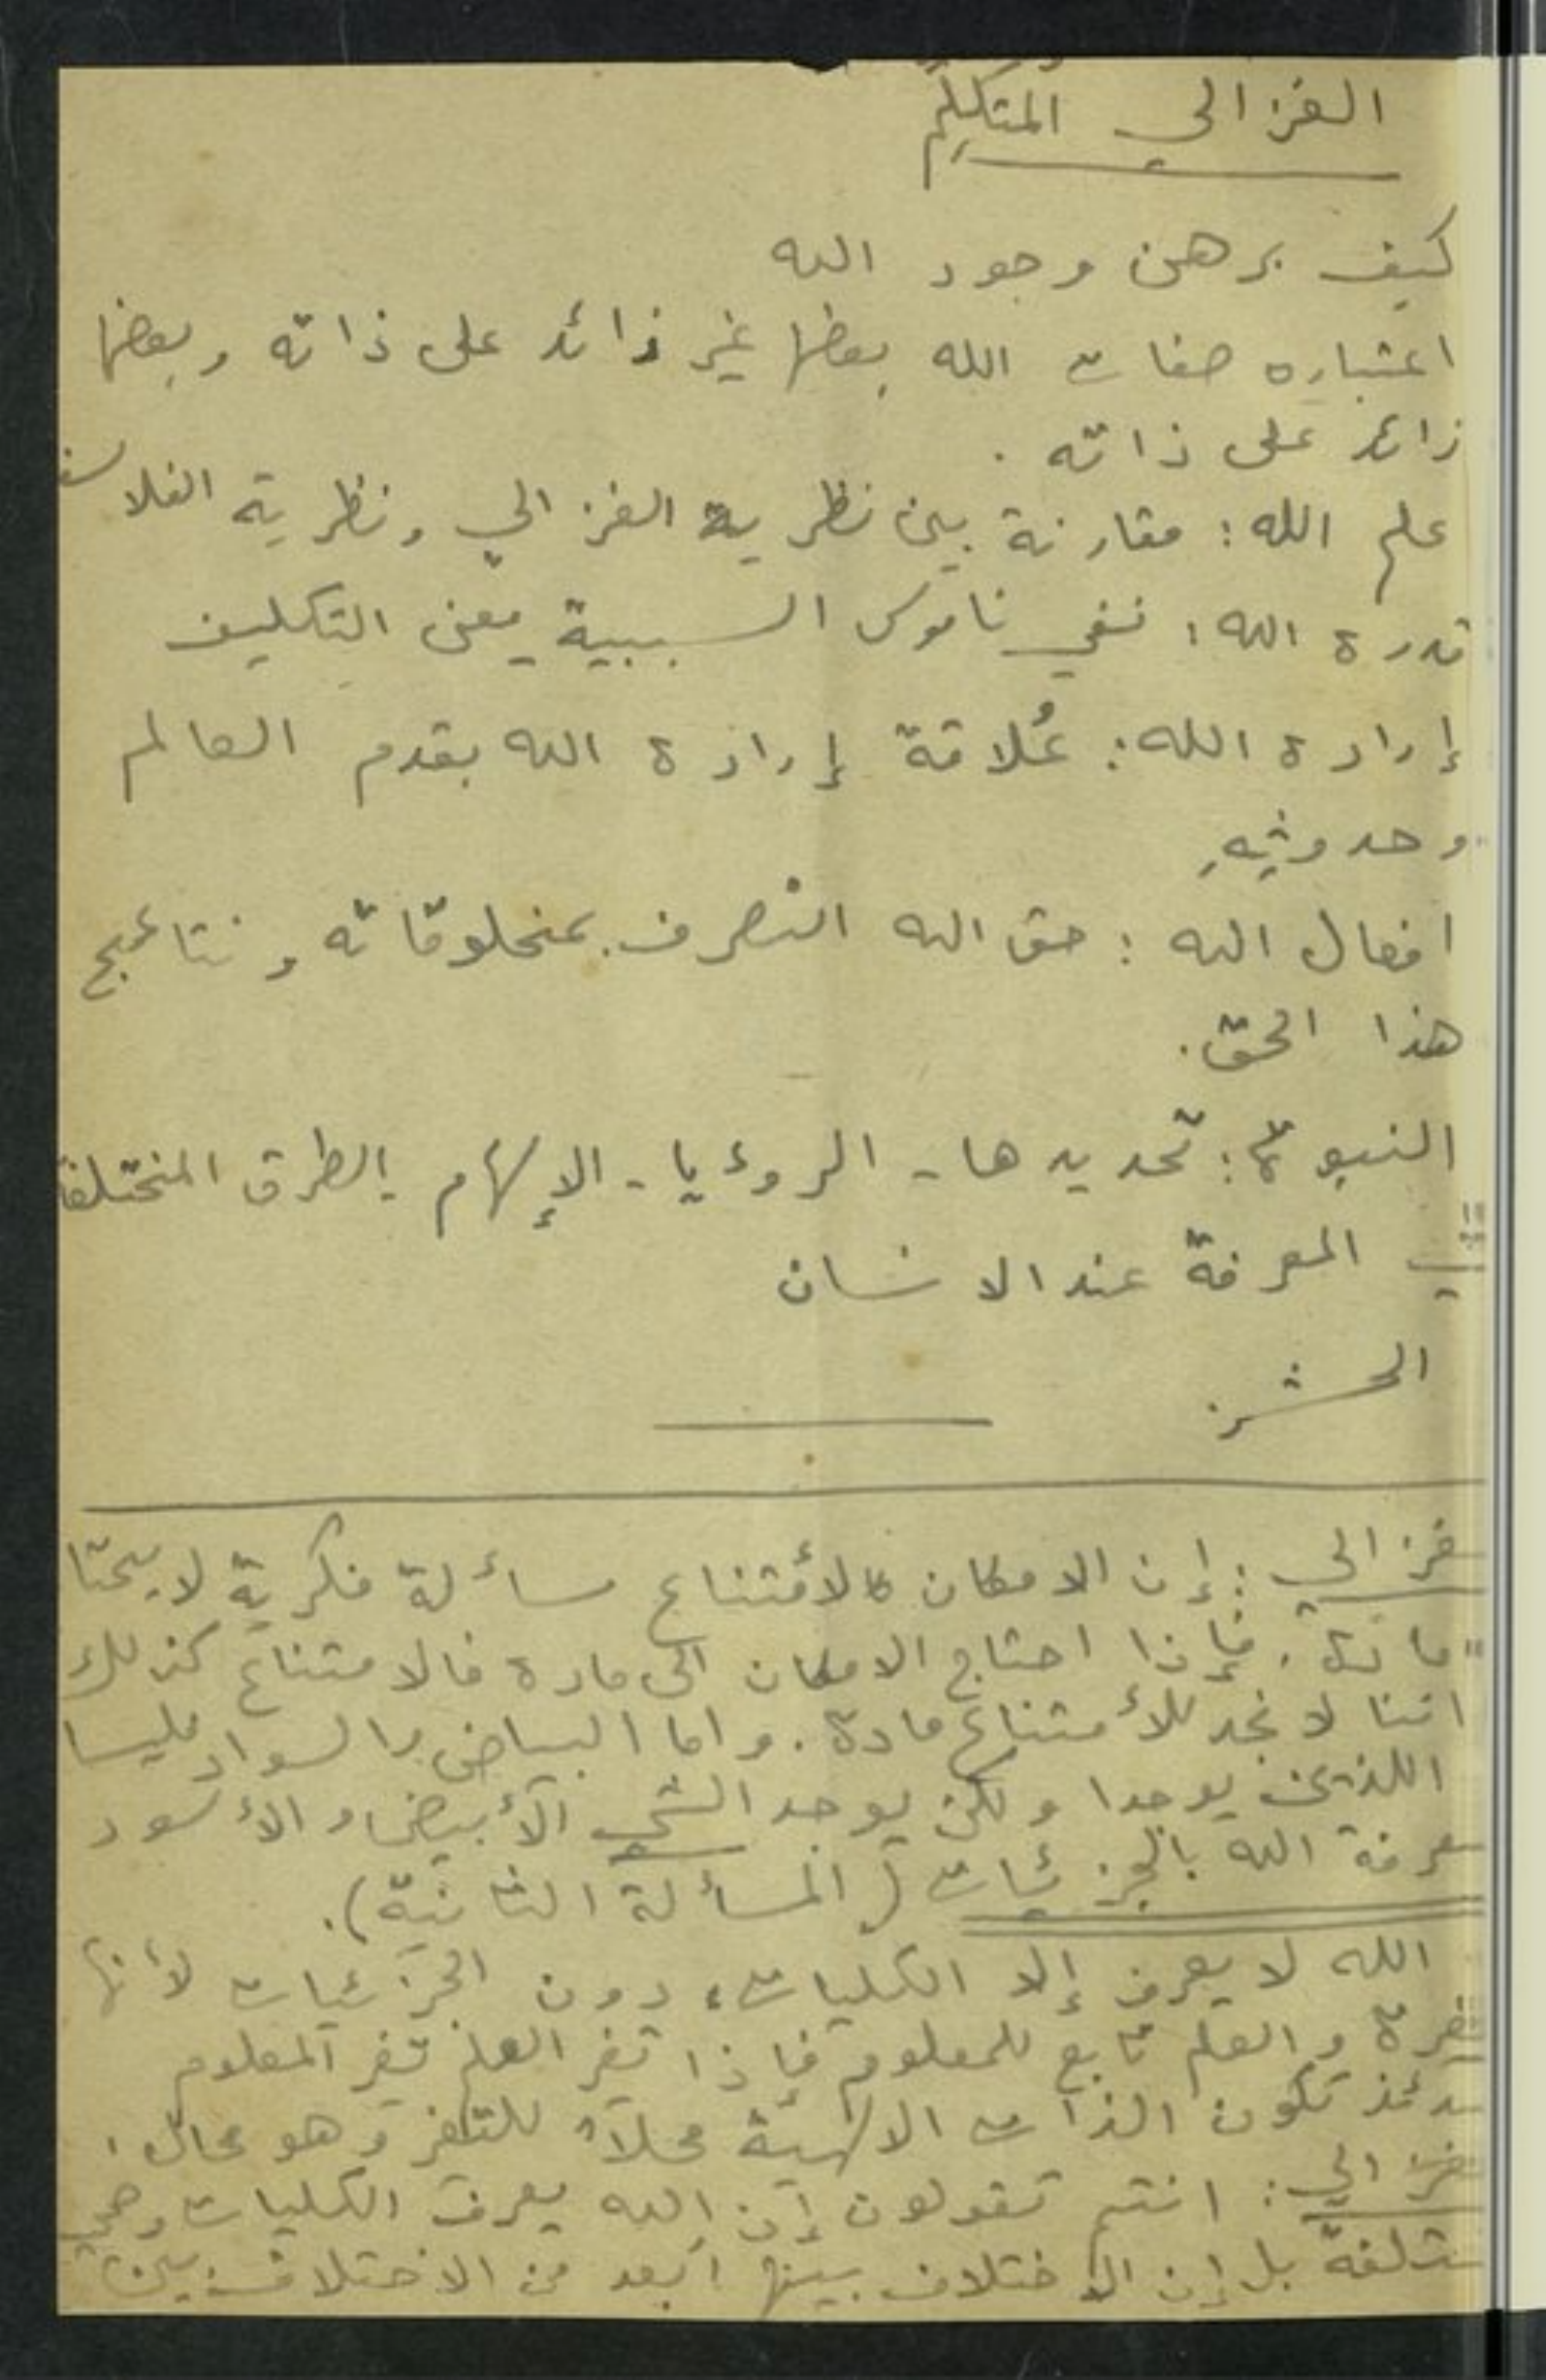 الغزالي المُتكلِّم
كيف برهن وجود الله
اعتباره صفات الله بعضها غير زائد على ذاته وبعضها
زائد على ذاته .
علم الله : مقارنة بين نظرية الغزالي ونظرية الفلاسفة
قدرة الله : نفي ناموس السببية معنى التكليف
إرادة الله : عُلاقة إرادة الله بقدم العالم
وحدوثِهِ
افعال الله : حق الله التصرف بمخلوقاته ونتائج
هذا الحق .
النبوة : تحديدها - الروءيا - الإلهام - الطرق المختلفة
في المعرفة عند الانسان
الحشر
غزالي : إن الامكان كالأمتناع مسألة فكرية لا يحتا
مادة . فإذا احتاج الامكان الى مادة فالامتناع كذلك
اننا لا نجد للأمتناع مادة . واما البياض والسواد فليسا
اللذين يوجدا ولكن يوجد الشيء الأبيض والأسود
معرفة الله بالجزئيات ( المسألة الثانية ) .
الله لا يعرف إلا الكليات ، دون الجزئيات لأنها
والعلم تابع للمعلوم فإذا تغير العلم تغير المعلوم
تكون الذات الالهية محلاً للتغير وهو محال .
غزالي : انتم تقولون إن الله يعرف الكليات وهي
مختلفة بل إن الاختلاف بينها أبعد من الاختلاف بين